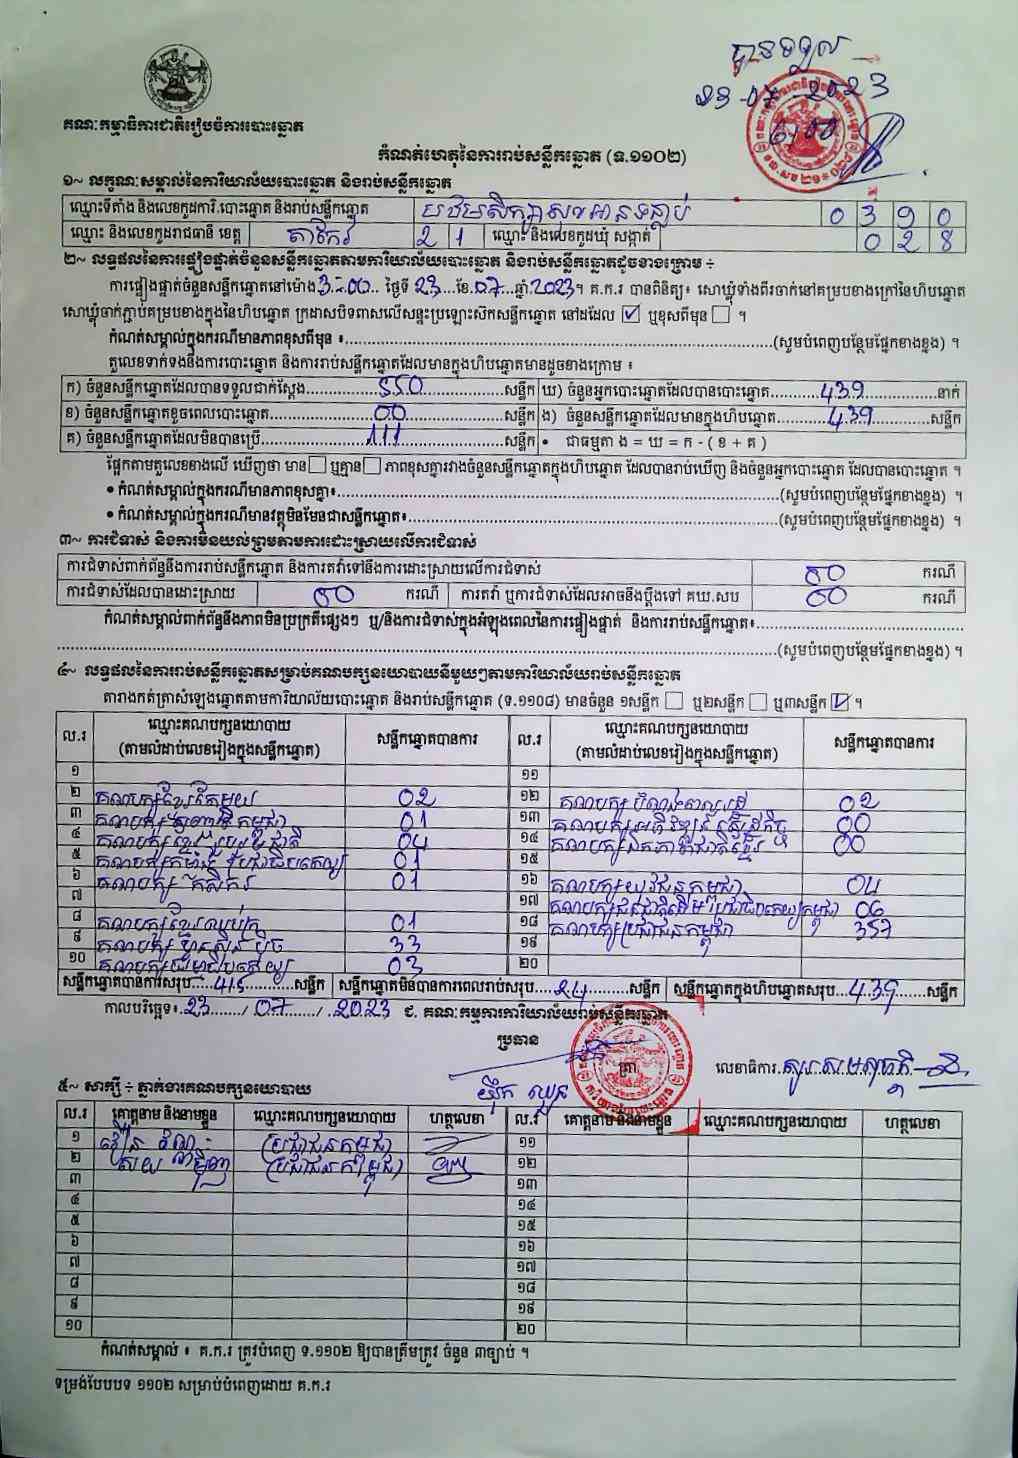 បានទទួល
23-07-2023
គណៈកម្មាធិការជាតិរៀបចំការបោះឆ្នោត
កំណត់ហេតុនៃការរាប់សន្លឹកឆ្នោត (ទ.១១០២)
១~ លក្ខណៈសម្គាល់នៃការិយាល័យបោះឆ្នោត និងរាប់សន្លឹកឆ្នោត
ឈ្មោះទីតាំង និងលេខកូដការិ.បោះឆ្នោត និងរាប់សន្លឹកឆ្នោត 0 3 9 0
ឈ្មោះ និងលេខកូដរាជធានី ខេត្ត តាកែវ 2 1 ឈ្មោះ និងលេខកូដឃុំ សង្កាត់ 0 2 8
២~ លទ្ធផលនៃការផ្ទៀងផ្ទាត់ចំនួនសន្លឹកឆ្នោតតាមការិយាល័យបោះឆ្នោត និងរាប់សន្លឹកឆ្នោតដូចខាងក្រោម ÷
ការផ្ទៀងផ្ទាត់ចំនួនសន្លឹកឆ្នោតនៅម៉ោង 3:00 ថ្ងៃទី 23 ខែ 07 ឆ្នាំ 2023។ គ.ក.រ បានពិនិត្យ៖ សោឃ្លុំទាំងពីរចាក់នៅគម្របខាងក្រៅនៃហិបឆ្នោត
សោឃ្លុំចាក់ភ្ជាប់គម្របខាងក្នុងនៃហិបឆ្នោត ក្រដាសបិទពាសលើសន្ទះប្រឡោះសិកសន្លឹកឆ្នោត នៅដដែល ☑ ឬខុសពីមុន ☐ ។
កំណត់សម្គាល់ក្នុងករណីមានភាពខុសពីមុន ៖ (សូមបំពេញបន្ថែមផ្នែកខាងខ្នង) ។
តួលេខទាក់ទងនឹងការបោះឆ្នោត និងការរាប់សន្លឹកឆ្នោតដែលមានក្នុងហិបឆ្នោតមានដូចខាងក្រោម ៖
ក) ចំនួនសន្លឹកឆ្នោតដែលបានទទួលជាក់ស្តែង 550 សន្លឹក ឃ) ចំនួនអ្នកបោះឆ្នោតដែលបានបោះឆ្នោត 439 នាក់
ខ) ចំនួនសន្លឹកឆ្នោតខូចពេលបោះឆ្នោត 00 សន្លឹក ង) ចំនួនសន្លឹកឆ្នោតដែលមានក្នុងហិបឆ្នោត 439 សន្លឹក
គ) ចំនួនសន្លឹកឆ្នោតដែលមិនបានប្រើ 111 សន្លឹក • ជាធម្មតា ង = ឃ = ក - ( ខ + គ )
ផ្អែកតាមតួលេខខាងលើ ឃើញថា មាន ☐ ឬគ្មាន ☐ ភាពខុសគ្នារវាងចំនួនសន្លឹកឆ្នោតក្នុងហិបឆ្នោត ដែលបានរាប់ឃើញ និងចំនួនអ្នកបោះឆ្នោត ដែលបានបោះឆ្នោត ។
• កំណត់សម្គាល់ក្នុងករណីមានភាពខុសគ្នា៖ (សូមបំពេញបន្ថែមផ្នែកខាងខ្នង) ។
• កំណត់សម្គាល់ក្នុងករណីមានវត្ថុមិនមែនជាសន្លឹកឆ្នោត៖ (សូមបំពេញបន្ថែមផ្នែកខាងខ្នង) ។
៣~ ការជំទាស់ និងការមិនយល់ព្រមតាមការដោះស្រាយលើការជំទាស់
ការជំទាស់ពាក់ព័ន្ធនឹងការរាប់សន្លឹកឆ្នោត និងការតវ៉ាទៅនឹងការដោះស្រាយលើការជំទាស់ 00 ករណី
ការជំទាស់ដែលបានដោះស្រាយ 00 ករណី ការតវ៉ា ឬការជំទាស់ដែលអាចនឹងប្តឹងទៅ គឃ.សប 00 ករណី
កំណត់សម្គាល់ពាក់ព័ន្ធនឹងភាពមិនប្រក្រតីផ្សេងៗ ឬ/និងការជំទាស់ក្នុងអំឡុងពេលនៃការផ្ទៀងផ្ទាត់ និងការរាប់សន្លឹកឆ្នោត៖
(សូមបំពេញបន្ថែមផ្នែកខាងខ្នង) ។
៤~ លទ្ធផលនៃការរាប់សន្លឹកឆ្នោតសម្រាប់គណបក្សនយោបាយនីមួយៗតាមការិយាល័យរាប់សន្លឹកឆ្នោត
តារាងកត់ត្រាសំឡេងឆ្នោតតាមការិយាល័យបោះឆ្នោត និងរាប់សន្លឹកឆ្នោត (ទ.១១០៨) មានចំនួន ១សន្លឹក ☐ ឬ២សន្លឹក ☐ ឬ៣សន្លឹក ☑ ។
ល.រ ឈ្មោះគណបក្សនយោបាយ (តាមលំដាប់លេខរៀងក្នុងសន្លឹកឆ្នោត) សន្លឹកឆ្នោតបានការ ល.រ ឈ្មោះគណបក្សនយោបាយ (តាមលំដាប់លេខរៀងក្នុងសន្លឹកឆ្នោត) សន្លឹកឆ្នោតបានការ
១ ១១
២ គណបក្សខ្មែរតែមួយ 02 ១២ គណបក្ស 02
៣ គណបក្ស កម្ពុជា 01 ១៣ គណបក្ស 00
៤ គណបក្សខ្មែររួបរួមជាតិ 04 ១៤ គណបក្សឯកភាពជាតិខ្មែរ 00
៥ គណបក្ស ប្រជាធិបតេយ្យ 01 ១៥
៦ គណបក្ស កសិករ 01 ១៦ គណបក្សយុវជនកម្ពុជា 04
៧ ១៧ គណបក្សជនជាតិដើមប្រជាធិបតេយ្យកម្ពុជា 06
៨ គណបក្សខ្មែរឈប់ក្រ 01 ១៨ គណបក្សប្រជាជនកម្ពុជា 357
៩ គណបក្សហ៊្វុនស៊ិនប៉ិច 33 ១៩
១០ គណបក្ស 03 ២០
សន្លឹកឆ្នោតបានការសរុប 415 សន្លឹក សន្លឹកឆ្នោតមិនបានការពេលរាប់សរុប 24 សន្លឹក សន្លឹកឆ្នោតក្នុងហិបឆ្នោតសរុប 439 សន្លឹក
កាលបរិច្ឆេទ៖ 23 / 07 / 2023 ជ. គណៈកម្មការការិយាល័យរាប់សន្លឹកឆ្នោត
ប្រធាន
ត្រា
លេខាធិការ
៥~ សាក្សី ÷ ភ្នាក់ងារគណបក្សនយោបាយ
ល.រ គោត្តនាម និងនាមខ្លួន ឈ្មោះគណបក្សនយោបាយ ហត្ថលេខា ល.រ គោត្តនាម និងនាមខ្លួន ឈ្មោះគណបក្សនយោបាយ ហត្ថលេខា
១ ប្រជាជនកម្ពុជា ១១
២ ប្រជាជនកម្ពុជា ១២
៣ ១៣
៤ ១៤
៥ ១៥
៦ ១៦
៧ ១៧
៨ ១៨
៩ ១៩
១០ ២០
កំណត់សម្គាល់ ៖ គ.ក.រ ត្រូវបំពេញ ទ.១១០២ ឱ្យបានត្រឹមត្រូវ ចំនួន ៣ច្បាប់ ។
ទម្រង់បែបបទ ១១០២ សម្រាប់បំពេញដោយ គ.ក.រ